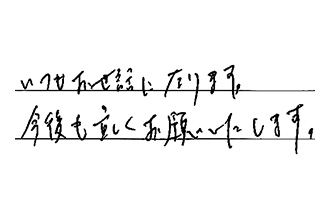 いつもお世話になります。
今後も宜しくお願いいたします。